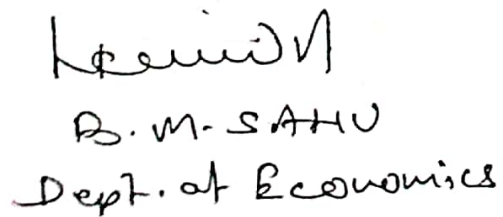 B.M. SAHU
Dept. of Economics